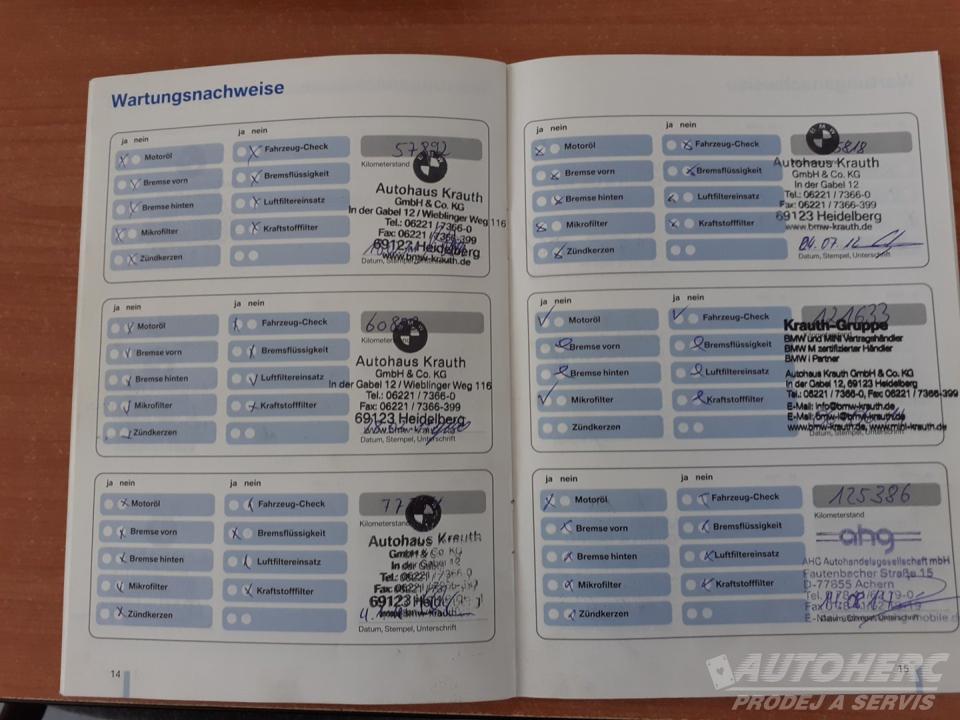 Wartungsnachweise
ja nein
ja nein
Motoröl
Fahrzeug-Check
Bremse vorn
Bremsflüssigkeit
Bremse hinten
Luftfiltereinsatz
Mikrofilter
Kraftstofffilter
Zündkerzen
57892
Kilometerstand
Autohaus Krauth
GmbH & Co. KG
In der Gabel 12 / Wieblinger Weg 116
Tel.: 06221 / 7366-0
Fax: 06221 / 7366-399
69123 Heidelberg
www.bmw-krauth.de
Datum, Stempel, Unterschrift
ja nein
ja nein
Motoröl
Fahrzeug-Check
Bremse vorn
Bremsflüssigkeit
Bremse hinten
Luftfiltereinsatz
Mikrofilter
Kraftstofffilter
Zündkerzen
Autohaus Krauth
GmbH & Co. KG
In der Gabel 12 / Wieblinger Weg 116
Tel.: 06221 / 7366-0
Fax: 06221 / 7366-399
69123 Heidelberg
www.bmw-krauth.de
Datum, Stempel, Unterschrift
ja nein
ja nein
Motoröl
Fahrzeug-Check
Bremse vorn
Bremsflüssigkeit
Bremse hinten
Luftfiltereinsatz
Mikrofilter
Kraftstofffilter
Zündkerzen
Kilometerstand
Autohaus Krauth
GmbH & Co. KG
In der Gabel 12
Tel.: 06221 / 7366-0
69123
www.bmw-krauth
Datum, Stempel, Unterschrift
14
ja nein
ja nein
Motoröl
Fahrzeug-Check
Bremse vorn
Bremsflüssigkeit
Bremse hinten
Luftfiltereinsatz
Mikrofilter
Kraftstofffilter
Zündkerzen
BMW
Autohaus Krauth
GmbH & Co. KG
In der Gabel 12
Tel.: 06221 / 7366-0
Fax: 06221 / 7366-399
69123 Heidelberg
www.bmw-krauth.de
Datum, Stempel, Unterschrift
ja nein
ja nein
Motoröl
Fahrzeug-Check
Bremse vorn
Bremsflüssigkeit
Bremse hinten
Luftfiltereinsatz
Mikrofilter
Kraftstofffilter
Zündkerzen
121633
Krauth-Gruppe
BMW und MINI Vertragshändler
BMW M zertifizierter Händler
BMW i Partner
Autohaus Krauth GmbH & Co. KG
In der Gabel 12, 69123 Heidelberg
Tel.: 06221 / 7366-0, Fax: 06221 / 7366-399
E-Mail: info@bmw-krauth.de
E-Mail: bmw-i@bmw-krauth.de
www.bmw-krauth.de, www.mini-krauth.de
Datum, Stempel, Unterschrift
ja nein
ja nein
Motoröl
Fahrzeug-Check
Bremse vorn
Bremsflüssigkeit
Bremse hinten
Luftfiltereinsatz
Mikrofilter
Kraftstofffilter
Zündkerzen
125386
Kilometerstand
ahg
AHG Autohandelsgesellschaft mbH
Fautenbacher Straße 15
D-77855 Achern
15
AUTOHERC
PRODEJ A SERVIS